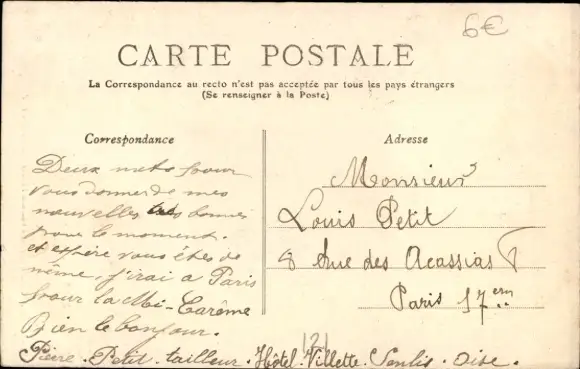 6€
CARTE POSTALE
La Correspondance au recto n'est pas acceptée par tous les pays étrangers
(Se renseigner à la Poste)
Correspondance
Deux mots pour
vous donner de mes
nouvelles très bonnes
pour le moment.
et espère vous êtes de
même, j'irai a Paris
pour la Mi-Carême
Bien le bonjour.
Pierre. Petit. tailleur. Hôtel. Villette. Senlis. Oise.
Adresse
Monsieur
Louis Petit
8 Rue des Acassias
Paris 17em
121